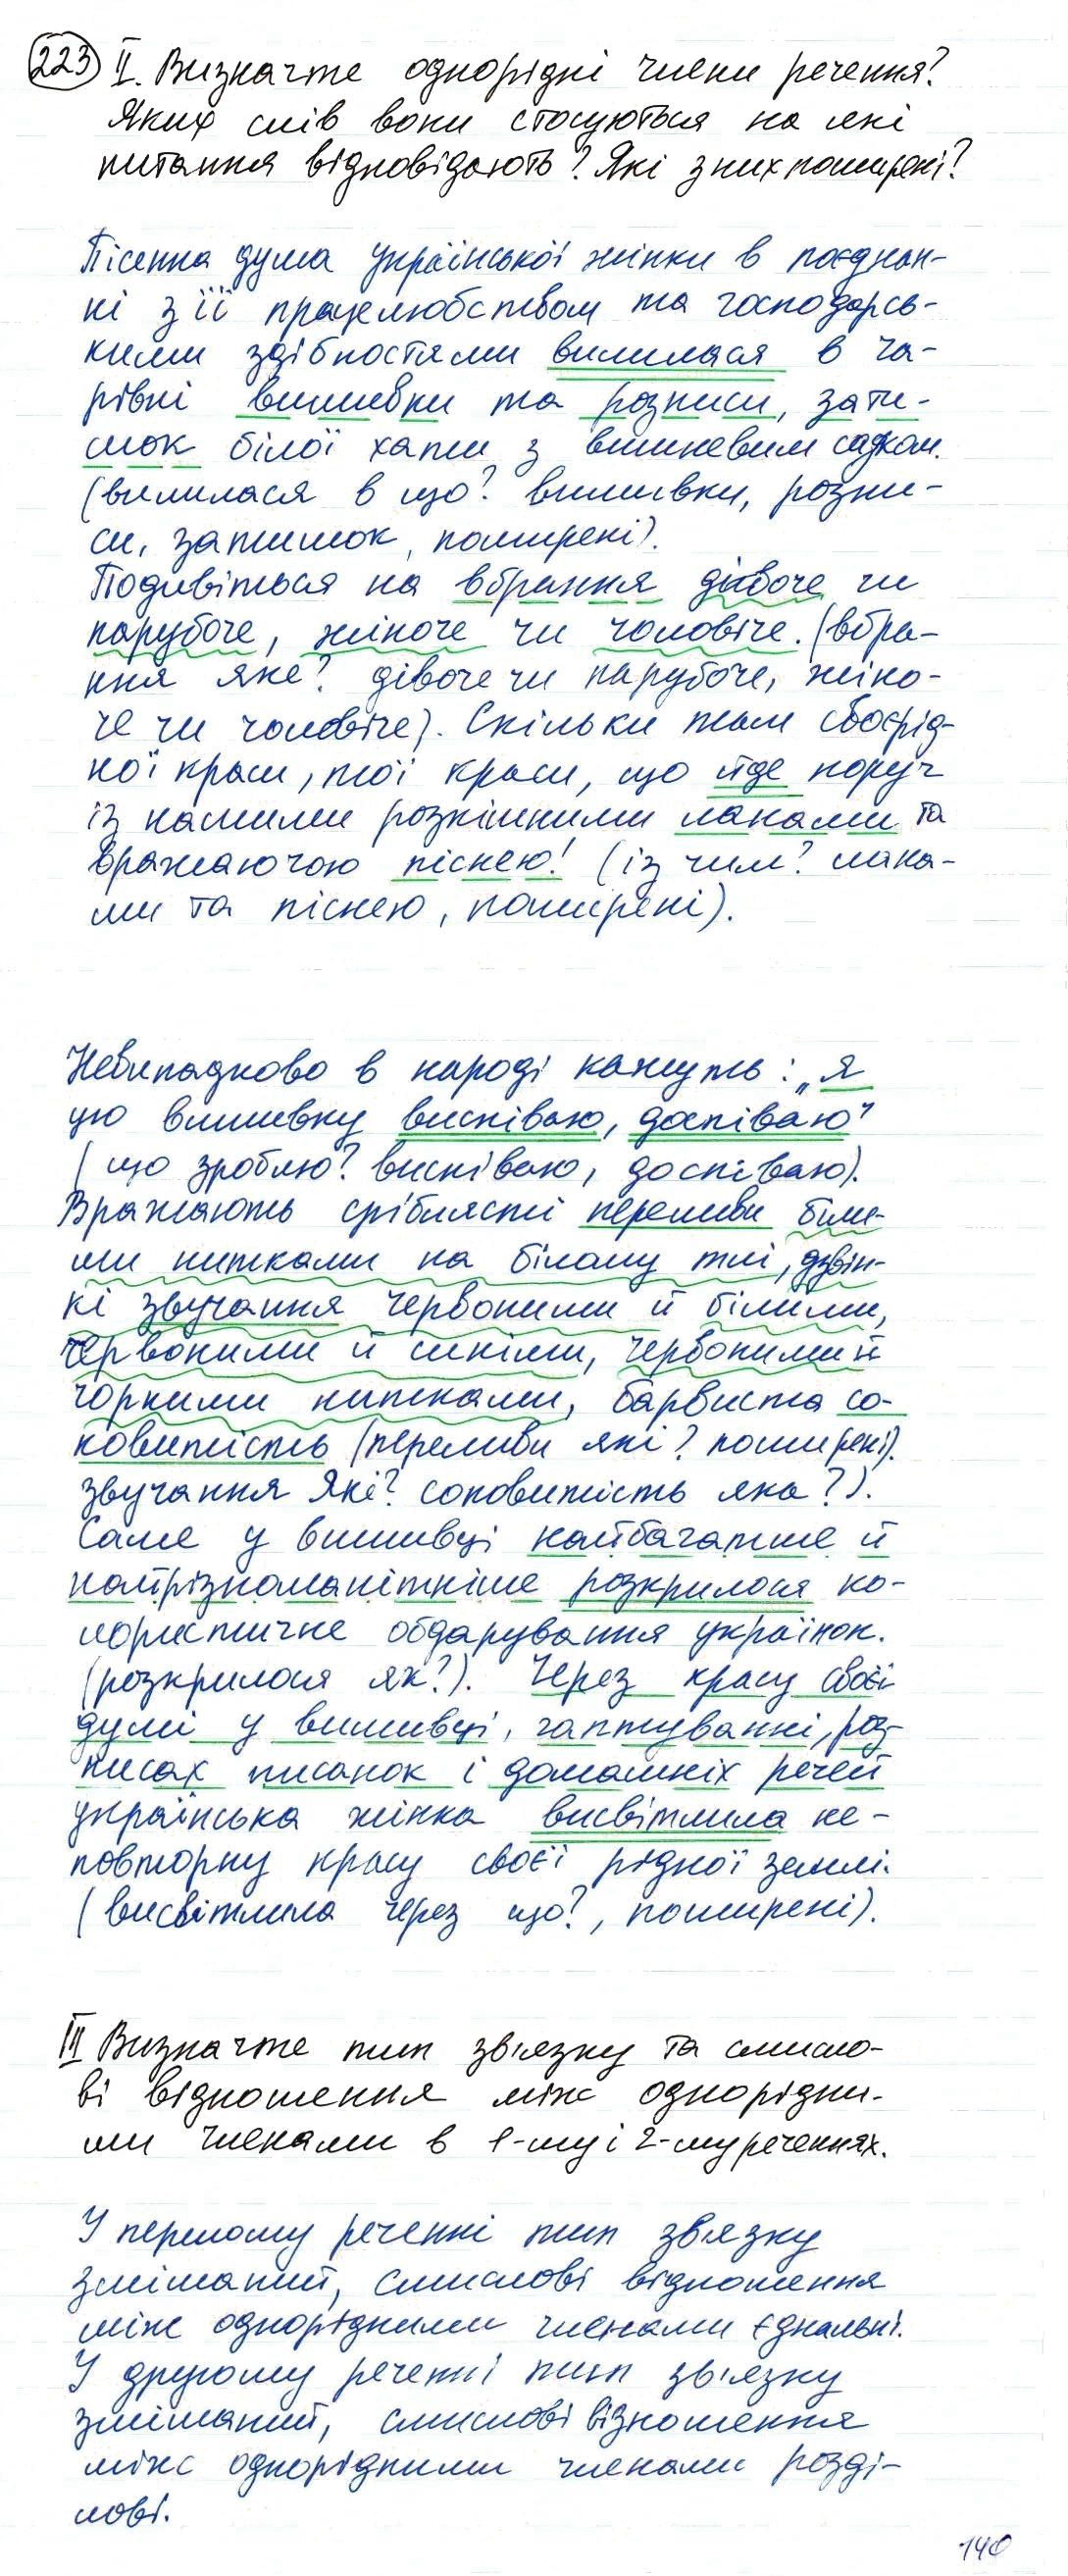 223 II. Визначте однорідні члени речення?
Яких слів вони стосуються на які
питання відповідають? Які з них поширені?
Пісенна душа української жінки в поєднан-
ні з її працелюбством та господарсь-
кими здібностями вилилася в ча-
рівні вишивки та розписи, зати-
шок білої хати з вишневим садком.
(вилилася в що? вишивки, розпи-
си, затишок, поширені).
Подивіться на вбрання дівоче чи
парубоче, жіноче чи чоловіче. (вбра-
ння яке? дівоче чи парубоче, жіно-
че чи чоловіче). Скільки там своєрід-
ної краси, тої краси, що йде поруч
із нашими розкішними ланами та
вражаючою піснею! (із чим? лана-
ми та піснею, поширені).
Невипадково в народі кажуть: „я
цю вишивку виспіваю, доспіваю"
(що зроблю? виспіваю, доспіваю).
Вражають сріблясті переливи біли-
ми нитками на білому тлі, дзвін-
кі звучання червоними й білими,
червоними й синіми, червоними й
чорними нитками, барвиста со-
ковитість (переливи які? поширені).
звучання Які? соковитість яка?).
Саме у вишивці найбагатше й
найрізноманітніше розкрилося ко-
лористичне обдарування українок.
(розкрилося як?). Через красу своєї
душі у вишивці, гаптуванні, роз-
писах писанок і домашніх речей
українська жінка висвітлила не-
повторну красу своєї рідної землі.
(висвітлила через що?, поширені).
III Визначте тип зв'язку та смисло-
ві відношення між однорідни-
ми членами в 1-му і 2-му реченнях.
У першому реченні тип зв'язку
змішаний, смислові відношення
між однорідними членами єднальні.
У другому реченні тип зв'язку
змішаний, смислові візношення
між однорідними членами розді-
лові.
140